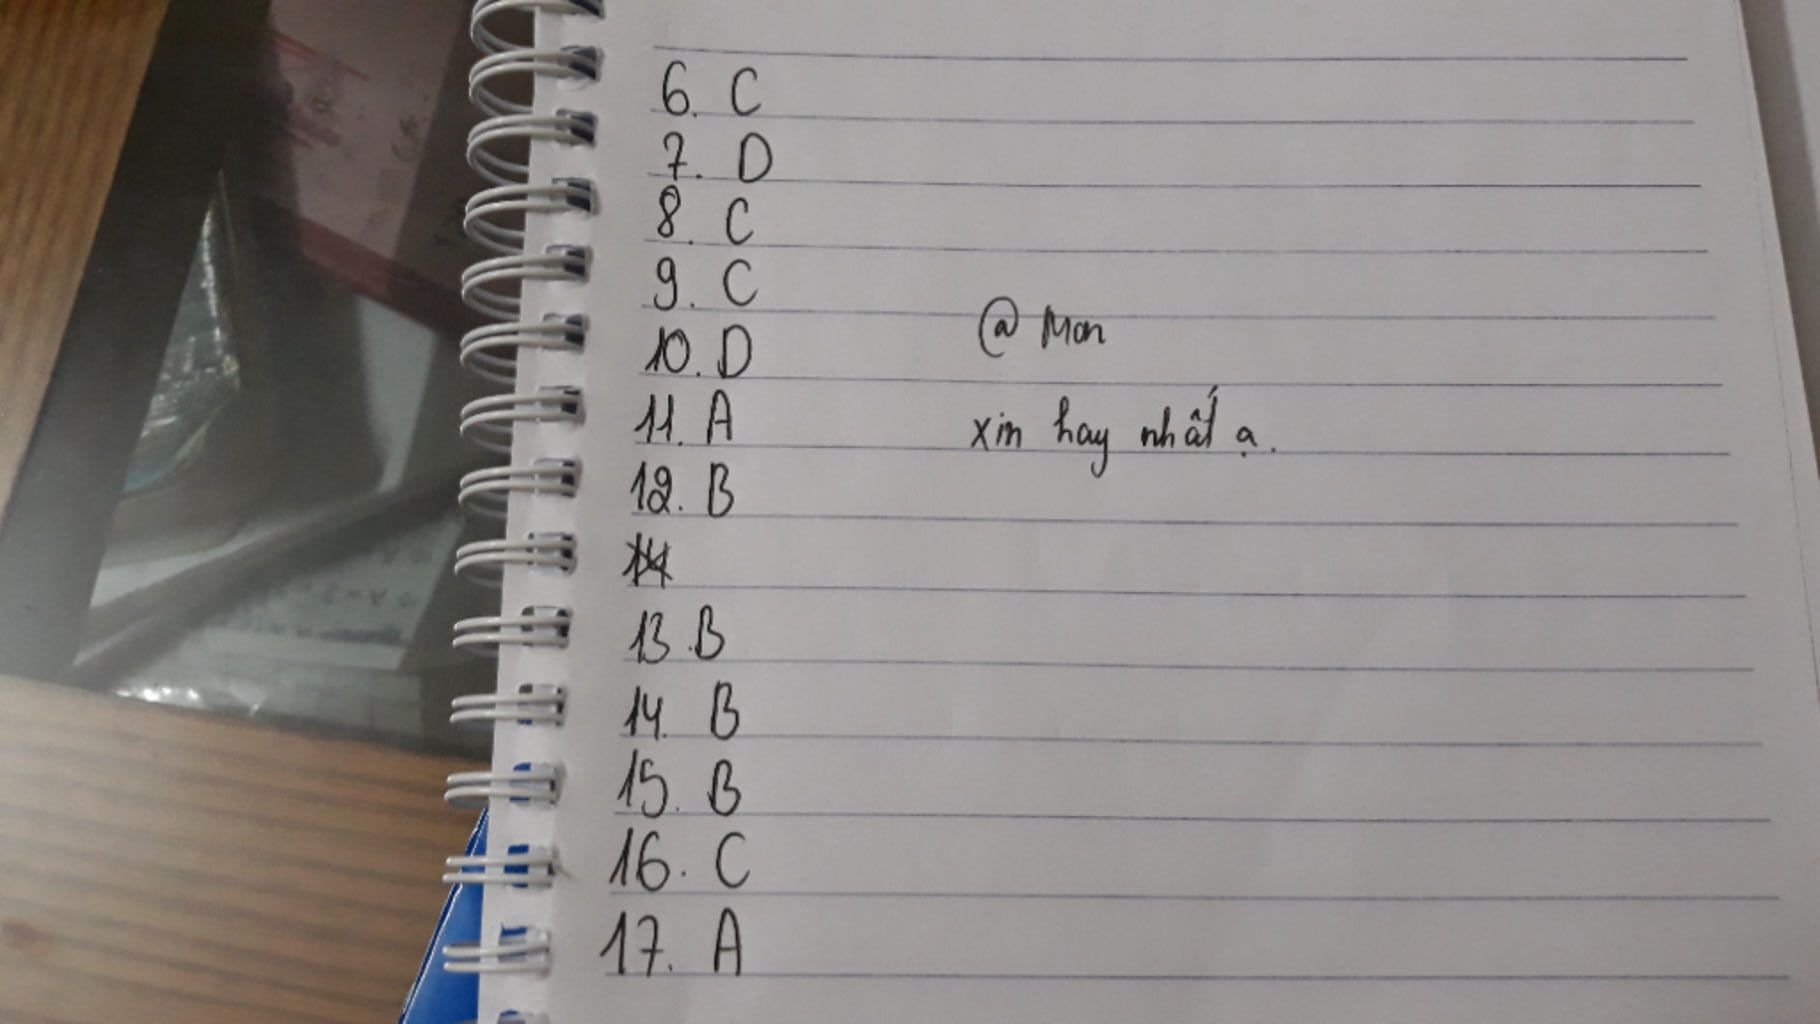 6. C
7. D
8. C
9. C
10. D
11. A
12. B
13. B
14. B
15. B
16. C
17. A
@ Mon
xin hay nhất ạ.